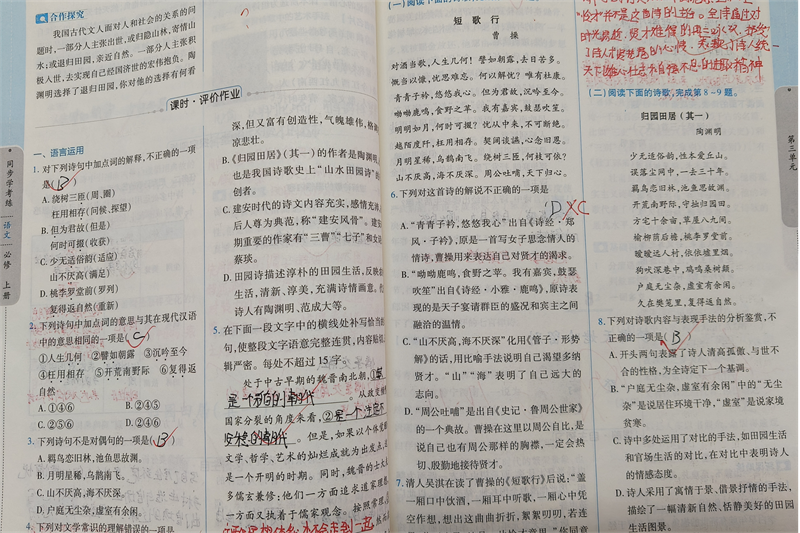 合作探究
我国古代文人面对人和社会的关系的问
题时,一部分人主张出世,或归隐山林,寄情山
水;或退归田园,亲近自然。一部分人主张积
极入世,去实现自己经国济世的宏伟抱负。陶
渊明选择了退归田园,你对他的选择有何看
课时·评价作业
一、语言运用
1. 对下列诗句中加点词的解释,不正确的一项
是( D )
A. 绕树三匝(周、圈)
枉用相存(问候、探望)
B. 但为君故(但是)
何时可掇(收获)
C. 少无适俗韵(适应)
山不厌高(满足)
D. 桃李罗堂前(罗列)
复得返自然(重新)
2. 下列诗句中加点词的意思与其在现代汉语
中的意思相同的一项是( C )
①人生几何 ②譬如朝露 ③沉吟至今
④枉用相存 ⑤开荒南野际 ⑥复得返
自然
A. ①④⑥ B. ②④⑤
C. ②⑤⑥ D. ②③④
3. 下列诗句不是对偶句的一项是( B )
A. 羁鸟恋旧林,池鱼思故渊。
B. 月明星稀,乌鹊南飞。
C. 山不厌高,海不厌深。
D. 户庭无尘杂,虚室有余闲。
4. 下列对文学常识的理解错误的一项是
深,但又富有创造性,气魄雄伟,格调
凉悲壮。
B. 《归园田居》(其一)的作者是陶渊明,
也是我国诗歌史上“山水田园诗”的
创者。
C. 建安时代的诗文内容充实,感情充沛
后人尊为典范,称“建安风骨”。建安
期重要的作家有“三曹”“七子”和女
蔡琰。
D. 田园诗描述淳朴的田园生活,反映
生活,清新、淳美,充满诗情画意。代
诗人有陶渊明、范成大等。
5. 在下面一段文字中的横线处补写恰当的
句,使整段文字语意完整连贯,内容贴切
辑严密。每处不超过 15 字。
处于中古早期的魏晋南北朝,①
是一个
从政党
国家分裂的角度来看,②是一个
。但是,如果以个体意
文学、哲学、艺术的灿烂成就为出发点,
是一个开明的时期。同时,魏晋的士大
多儒玄兼修;他们一方面追求道家理想
一方面又执着于儒家观念。按照常理,
(一)阅读下面的诗
短歌行
曹操
对酒当歌,人生几何!譬如朝露,去日苦多。
慨当以慷,忧思难忘。何以解忧?唯有杜康。
青青子衿,悠悠我心。但为君故,沉吟至今。
呦呦鹿鸣,食野之苹。我有嘉宾,鼓瑟吹笙。
明明如月,何时可掇?忧从中来,不可断绝。
越陌度阡,枉用相存。契阔谈䜩,心念旧恩。
月明星稀,乌鹊南飞。绕树三匝,何枝可依?
山不厌高,海不厌深。周公吐哺,天下归心。
6. 下列对这首诗的解说不正确的一项是
D C
A. “青青子衿,悠悠我心”出自《诗经·郑
风·子衿》,原是一首写女子思念情人的
情诗,曹操用来表达自己对贤才的渴求。
B. “呦呦鹿鸣,食野之苹。我有嘉宾,鼓瑟
吹笙”出自《诗经·小雅·鹿鸣》,原诗表
现的是天子宴请群臣的盛况和宾主之间
融洽的温情。
C. “山不厌高,海不厌深”化用《管子·形势
解》的话,用比喻手法说明自己渴望多纳
贤才。“山”“海”表明了自己远大的
志向。
D. “周公吐哺”是出自《史记·鲁周公世家》
的一个典故。曹操在这里以周公自比,是
说自己也有周公那样的胸襟,一定会热
切、殷勤地接待贤才。
7. 清人吴淇在读了曹操的《短歌行》后说:“盖
一厢口中饮酒,一厢耳中听歌,一厢心中凭
空作想,想出这曲曲折折,絮絮叨叨,若连
(二)阅读下面的诗歌,完成第 8~9 题。
归园田居(其一)
陶渊明
少无适俗韵,性本爱丘山。
误落尘网中,一去三十年。
羁鸟恋旧林,池鱼思故渊。
开荒南野际,守拙归园田。
方宅十余亩,草屋八九间。
榆柳荫后檐,桃李罗堂前。
暧暧远人村,依依墟里烟。
狗吠深巷中,鸡鸣桑树颠。
户庭无尘杂,虚室有余闲。
久在樊笼里,复得返自然。
8. 下列对诗歌内容与表现手法的分析鉴赏,不
正确的一项是( B )
A. 开头两句表露了诗人清高孤傲、与世不
合的性格,为全诗定下一个基调。
B. “户庭无尘杂,虚室有余闲”中的“无尘
杂”是说居住环境干净,“虚室”是说家境
贫寒。
C. 诗中多处运用了对比的手法,如田园生活
和官场生活的对比,在对比中表明诗人
的情感态度。
D. 诗人采用了寓情于景、借景抒情的手法,
描绘了一幅清新自然、恬静美好的田园
生活图景。
同步学考练
语文
必修
上册
第三单元